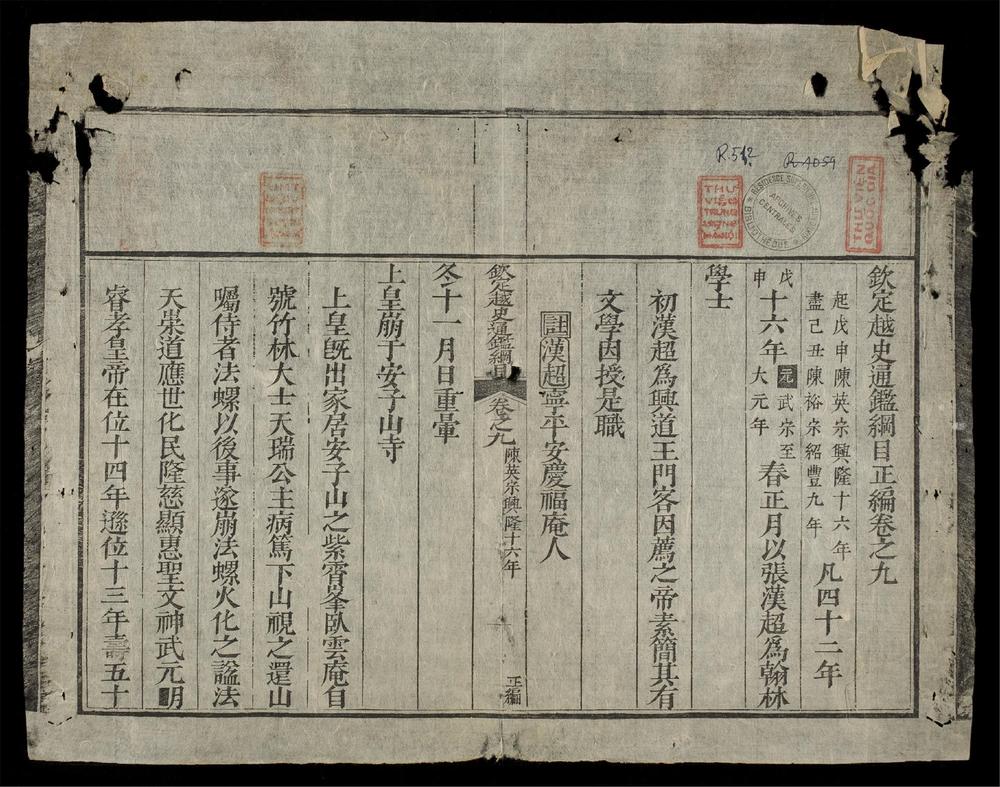 R.512
R-4059
THƯ VIỆN TRUNG ƯƠNG HÀ NỘI
ARCHIVES CENTRALES
THƯ VIỆN QUỐC GIA
欽定越史通鑑綱目正編卷之九
起戊申陳英宗興隆十六年
盡己丑陳裕宗紹豐九年
凡四十二年
戊申
十六年
元武宗至大元年
春正月以張漢超爲翰林
學士
初漢超爲興道王門客因薦之帝素簡其有
文學因授是職
註漢超寧平安慶福庵人
欽定越史通鑑綱目 卷之九 陳英宗興隆十六年 正編
冬十一月日重暈
上皇崩于安子山寺
上皇旣出家居安子山之紫霄峯臥雲庵自
號竹林大士天瑞公主病篤下山視之還山
囑侍者法螺以後事遂崩法螺火化之諡法
天崇道應世化民隆慈顯惠聖文神武元明
睿孝皇帝在位十四年遜位十三年壽五十